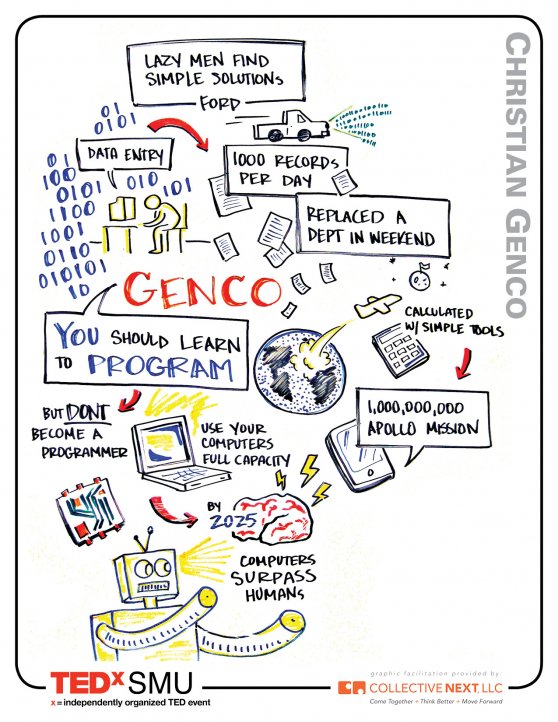 CHRISTIAN GENCO
LAZY MEN FIND
SIMPLE SOLUTIONS
FORD
01
0101
DATA ENTRY
1000 RECORDS
PER DAY
REPLACED A
DEPT IN WEEKEND
01
100
0101
010
101
1100
1001
011
0110
010101
10
GENCO
YOU SHOULD LEARN
TO PROGRAM
CALCULATED
W/ SIMPLE TOOLS
1,000,000,000
APOLLO MISSION
BUT DONT
BECOME A
PROGRAMMER
USE YOUR
COMPUTERS
FULL CAPACITY
BY
2025
COMPUTERS
SURPASS
HUMANS
TEDxSMU
x = independently organized TED event
graphic facilitation provided by:
COLLECTIVE NEXT, LLC
Come Together + Think Better + Move Forward